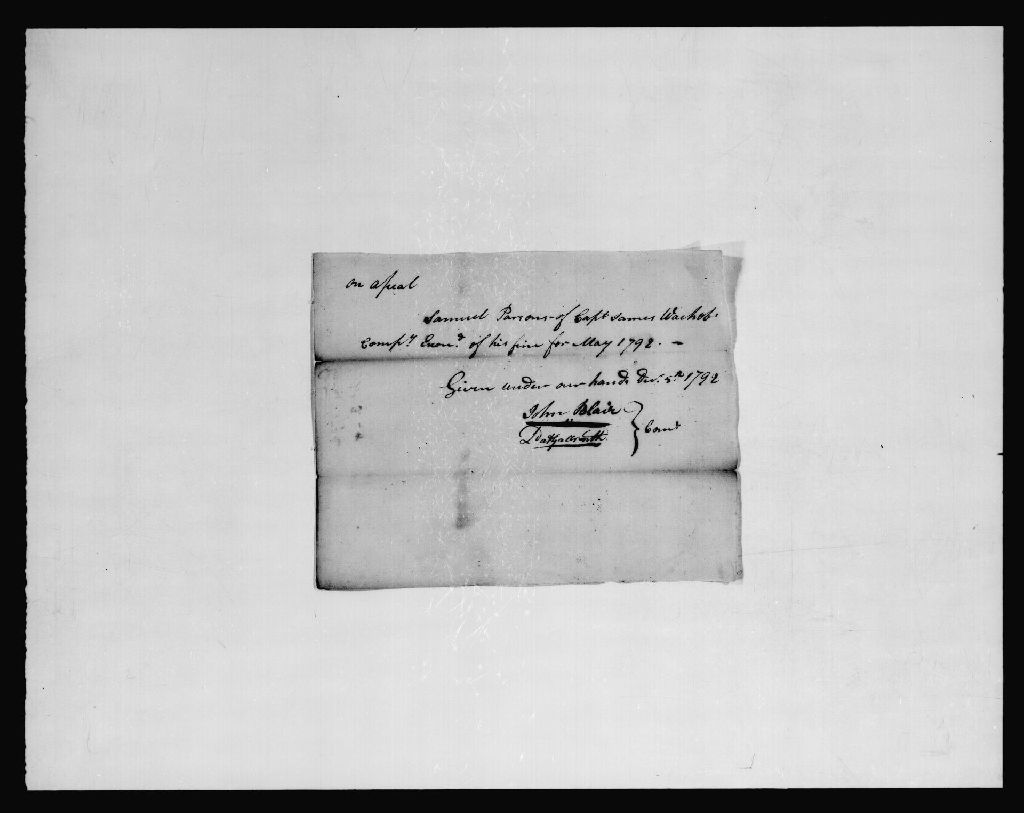 on apeal
Samuel Parsons of Capt James Wachob
Compy. Exond. of his fine for May 1792. —
Given under our hands Decr. 5th 1792
John Blair
Comt